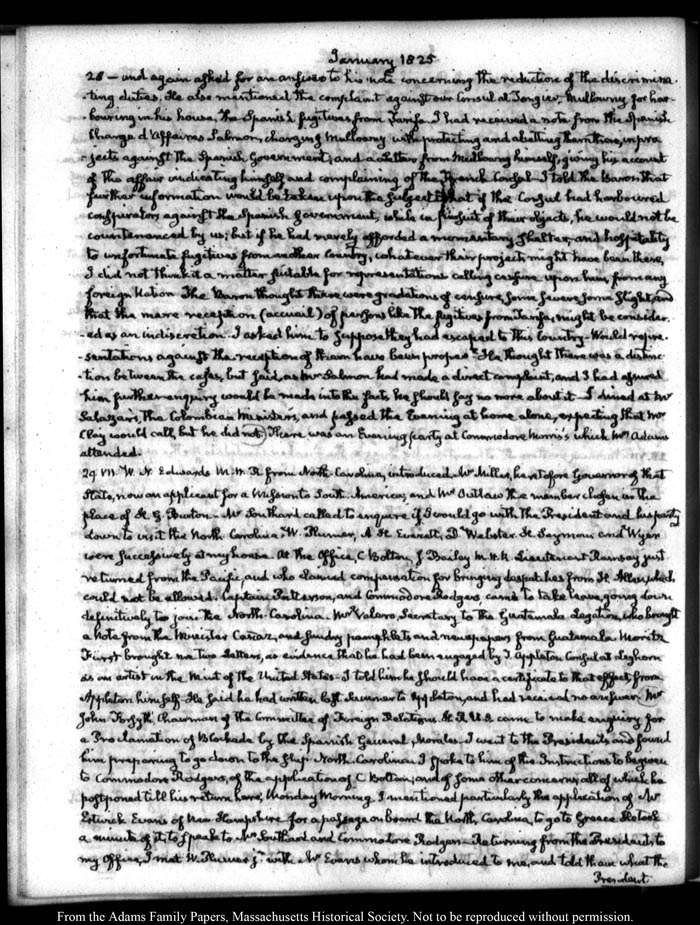 January 1825
28 — and again asked for an answer to his note concerning the reduction of the discrimina-
-ting duties. He also mentioned the complaint against our Consul at Tangier, Mullowny for har-
-bouring in his house, the Spanish fugitives from Tarifa. I had received a note from the Spanish
Chargé d'Affaires Salmon, charging Mullowny with protecting and abetting them there, in pro-
-jects against the Spanish Government, and a Letter from Mullowny himself, giving his account
of the affair vindicating himself and complaining of the French Consul. I told the Baron that
further information would be taken upon the subject that if the Consul had harboured
conspirators against the Spanish Government, while in pursuit of their objects, he would not be
countenanced by us; but if he had merely afforded a momentary shelter, and hospitality
to unfortunate fugitives from another Country, whatever their projects might have been there,
I did not think it a matter suitable for representations calling censure upon him, from any
foreign Nation. The Baron thought there were gradations of censure, some severe some slight, and
that the mere reception (accueil) of persons like the fugitives from Tarifa, might be consider-
-ed as an indiscretion. I asked him to suppose they had escaped to this Country. Would repre-
-sentations against the reception of them have been proper? He thought there was a distinc-
-tion between the cases, but said, as Mr Salmon had made a direct complaint, and I had assured
him further enquiry would be made into the facts, he should say no more about it. I dined at Mr
Salazar's, the Colombian Minister's, and passed the Evening at home alone, expecting that Mr
Clay would call, but he did not. There was an Evening party at Commodore Morris's which Mrs Adams
attended.
29. VII. W. N. Edwards M.H.R. from North-Carolina, introduced Mr Miller, heretofore Governor of that
State, now an applicant for a Mission to South America, and Mr Outlaw the member chosen in the
place of H. G. Burton. Mr Southard called to enquire if I would go with the President and his party
down to visit the North Carolina. W. Plumer, A. H. Everett, D. Webster H. Seymour and Wyer
were successively at my house. At the Office, C Bolton, J. Bailey M.H.R. Lieutenant Ramsay just
returned from the Pacific, and who claimed compensation for bringing despatches from H. Allen, which
could not be allowed. Captain Patterson, and Commodore Rodgers came to take leave, going down
definitively to join the North-Carolina. Mr Valero, Secretary to the Guatemala Legation, who brought
a Note from the Minister Canaz, and sundry pamphlets and newspapers from Guatemala. Moritz
Fürst brought me two Letters, as evidence that he had been engaged by T. Appleton Consul at Leghorn
as an artist in the Mint of the United States. I told him he should have a certificate to that effect from
Appleton himself. He said he had written last Summer to Appleton, and had received no answer. Mr
John Forsyth Chairman of the Committee of Foreign Relations H.R.U.S. came to make enquiry for
a Proclamation of Blockade by the Spanish General, Morales. I went to the President's and found
him preparing to go down to the Ship North-Carolina. I spoke to him of the Instructions to be given
to Commodore Rodgers, of the application of C Bolton, and of some other concerns; all of which he
postponed till his return here, Monday Morning. I mentioned particularly the application of Mr
Estwick Evans of New Hampshire for a passage on board the North Carolina, to go to Greece. He took
a minute of it, to speak to Mr Southard and Commodore Rodgers. Returning from the President's to
my Office, I met W. Plumer jr. with Mr Evans whom he introduced to me, and told them what the
President
From the Adams Family Papers, Massachusetts Historical Society. Not to be reproduced without permission.